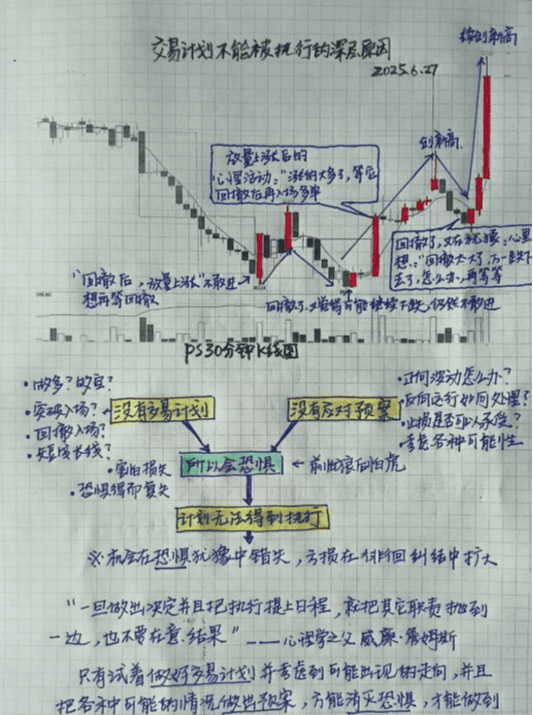 交易计划不能被执行的深层原因
2025.6.27
接创新高
创新高
放量上涨后的
心理活动："涨的太多了，等它
回撤后再入场多单
"回撤后，放量上涨"不敢进
想再等回撤
回撤了，又在犹豫：心里
想："回撤太大了，万一跌下
去了，怎么办，再等等
回撤了，
可能继续下跌，仍然不敢进
PS30分钟K线图
·做多？做空？
·突破入场？
·回撤入场？
·短线长线？
没有交易计划
没有应对预案
·正向波动怎么办？
·反向运行如何处理？
·止损是否可以承受？
·考虑各种可能性
·害怕损失
·恐惧得而复失
所以会恐惧
←前怕狼后怕虎
计划无法得到执行
※机会在恐惧犹豫中错失，亏损在徘徊纠结中扩大
"一旦做出决定并且把执行提上日程，就把其它职责抛到
一边，也不要在意结果"——心理学之父 威廉·詹姆斯
只有试着做好交易计划并考虑到可能出现的走向，并且
把各种可能的情况做出预案，方能消灭恐惧，才能做到